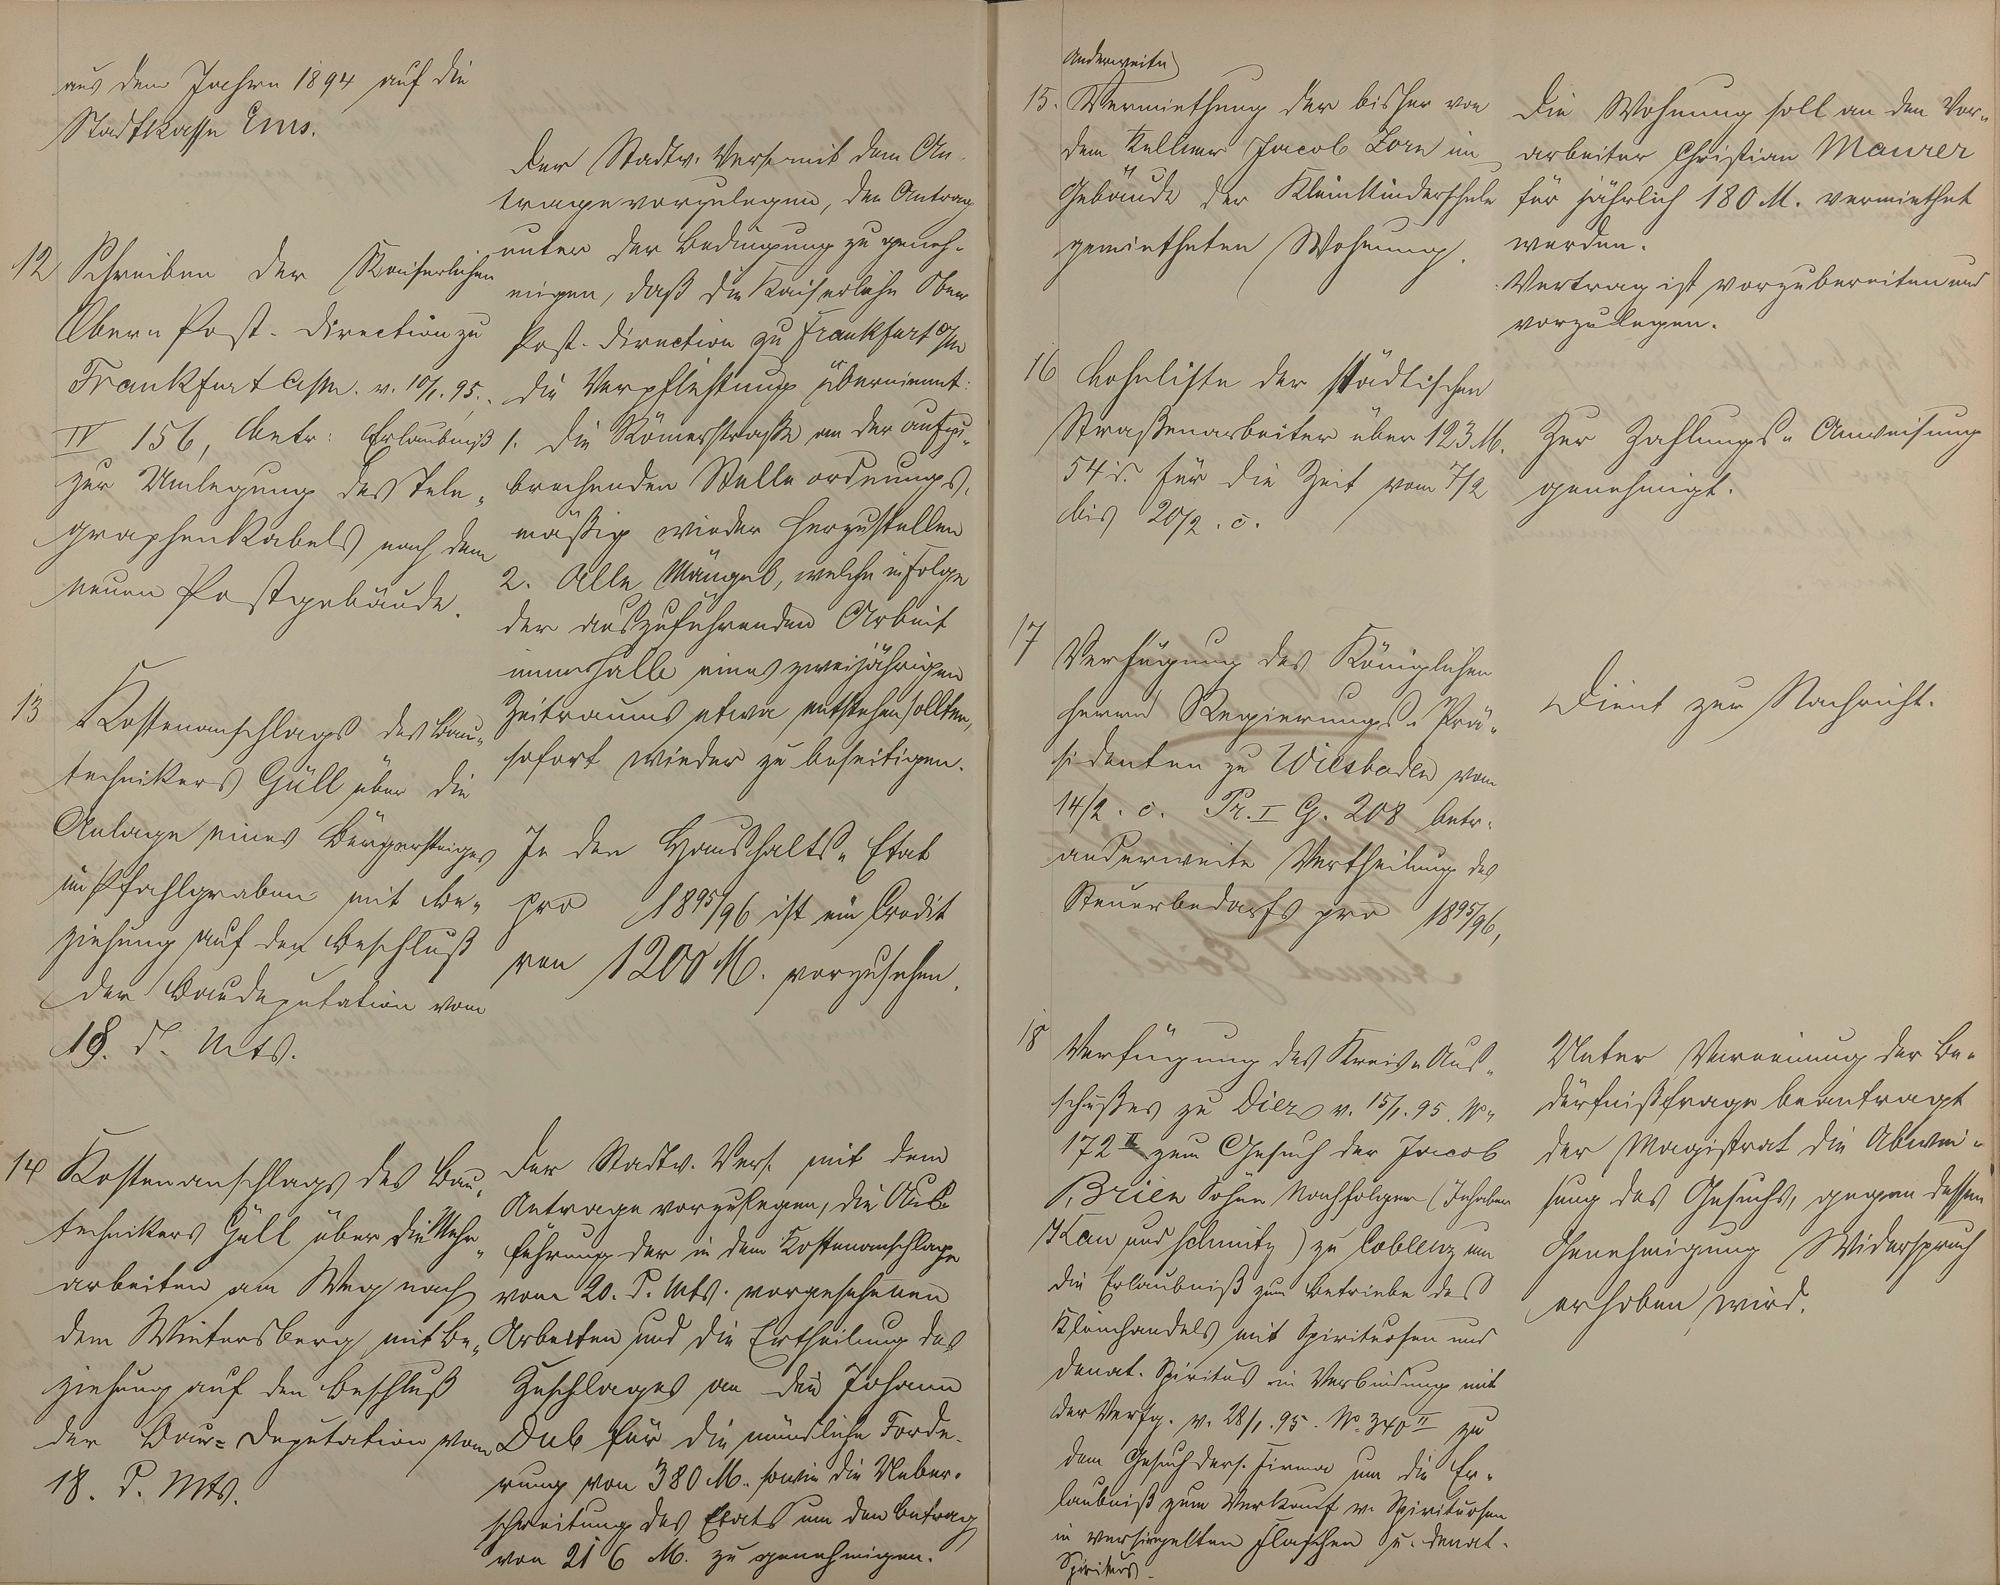 aus dem Jahre 1894 auf die
Stadtkasse Ems.
12 Schreiben der Kaiserlichen
Obern Post-Direction zu
Frankfurt a/M. v. 10/1. 95.
IV 156, betr: Erlaubniß
zur Umlegung des Tele-
graphenkabels nach dem
neuen Postgebäude.
Der Stadtv. Vers. mit dem An-
trage vorzulegen, den Antrag
unter der Bedingung zu geneh-
migen, daß die Kaiserliche Ober
Post-Direction zu Frankfurt a/M
die Verpflichtung übernimmt:
1. die Römerstraße an der aufzu-
brechenden Stelle ordnungs-
mäßig wieder herzustellen
2. Alle Mängel, welche in Folge
der auszuführenden Arbeit
innerhalb eines zweijährigen
Zeitraums etwa entstehen sollten,
sofort wieder zu beseitigen.
13 Kostenanschlags des Bau-
technikers Güll über die
Anlage eines Bürgersteiges
im Pfahlgraben mit Be-
ziehung auf den Beschluß
der Baudeputation vom
18. d. Mts.
In den Haushalts-Etat
pro 1895/96 ist ein Credit
von 1200 M. vorzusehen.
14 Kostenanschlags des Bau-
technikers Güll über die Mehr-
arbeiten am Weg nach
dem Wintersberg mit Be-
ziehung auf den Beschluß
der Bau-Deputation vom
18. d. Mts.
Der Stadtv. Vers. mit dem
Antrage vorzulegen, die Aus-
führung der in dem Kostenanschlage
vom 20. d. Mts. vorgesehenen
Arbeiten und die Ertheilung des
Zuschlages an den Johann
Dub für die mündliche Forde-
rung von 380 M. sowie die Ueber-
schreitung des Etats um den Betrag
von 216 M. zu genehmigen.
Anderweite
15. Vermiethung der bisher von
dem Kellner Jacob Zorn im
Gebäude der Kleinkinderschule
gemietheten Wohnung.
Die Wohnung soll an den Vor-
arbeiter Christian Maurer
für jährlich 180 M. vermiethet
werden.
Vertrag ist vorzubereiten und
vorzulegen.
16 Lohnliste der städtischen
Straßenarbeiter über 123 M.
54 d. für die Zeit vom 7/2
bis 20/2. c.
Zur Zahlungs-Anweisung
genehmigt.
17 Verfügung des Königlichen
Herrn Regierungs-Prä-
sidenten zu Wiesbaden vom
14/2. c. Pr. I G. 208 betr.
anderweite Vertheilung des
Steuerbedarfs pro 1895/96,
Dient zur Nachricht.
18 Verfügung des Kreis-Aus-
schußes zu Diez v. 15/1. 95 No
172 II zum Gesuch der Jacob
Brien Söhne Nachfolger (Inhaber
Kau und Schmitz) zu Coblenz um
die Erlaubniß zum Betriebe des
Kleinhandels mit Spirituosen und
denat. Spiritus in Verbindung mit
der Verfg. v. 28/1. 95. No. 340 II zu
dem Gesuch ders. Firma um die Er-
laubniß zum Verkauf v. Spirituosen
in versiegelten Flaschen u. denat.
Spiritus.
Unter Verneinung der Be-
dürfnißfrage beantragt
der Magistrat die Abwei-
sung des Gesuchs, gegen dessen
Genehmigung Widerspruch
erhoben wird.